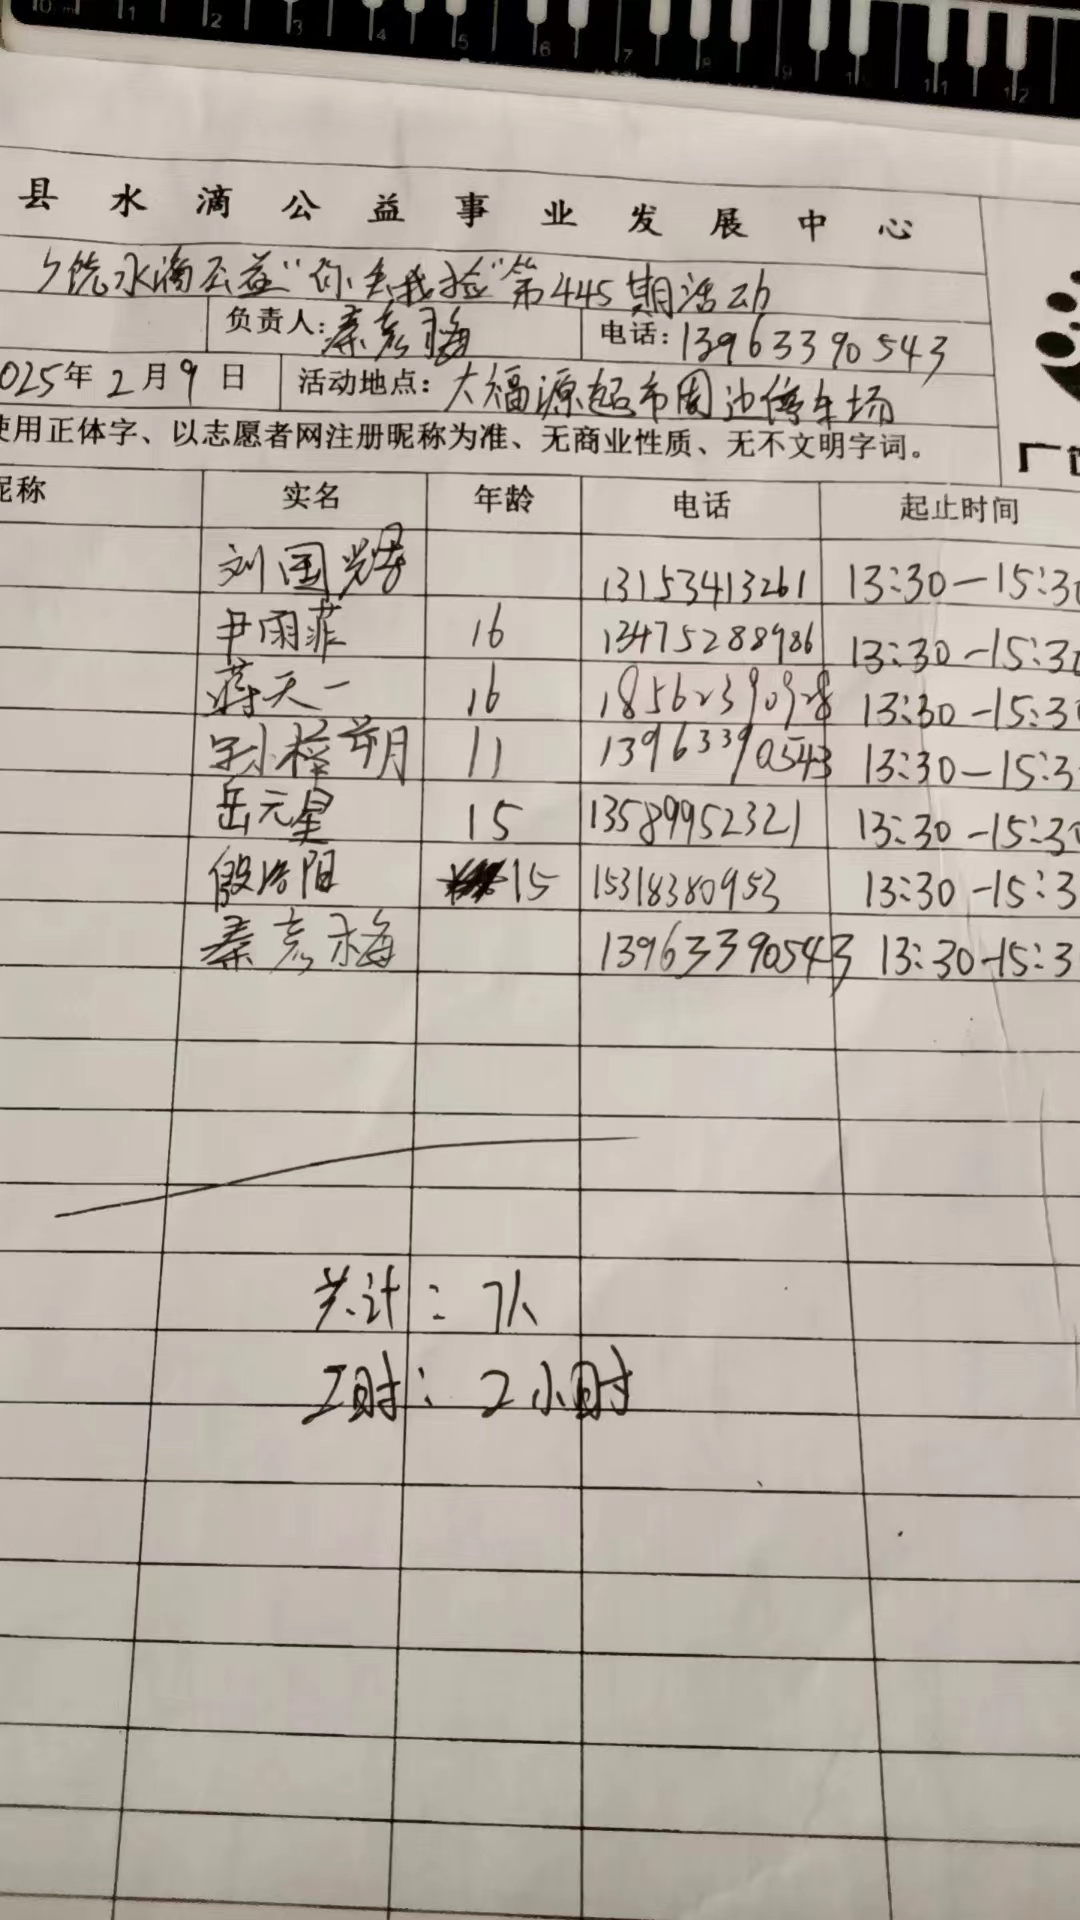 0 1 2 3 4 5 6 7 8 9 10 11 12
县水滴公益事业发展中心
饶水滴公益"你丢我捡"第445期活动
负责人:秦彦梅 电话:13963390543
025年2月9日 活动地点:大福源超市周边停车场
使用正体字、以志愿者网注册昵称为准、无商业性质、无不文明字词。
广
昵称 实名 年龄 电话 起止时间
刘国 13153413261 13:30—15:30
尹雨菲 16 13475288986 13:30-15:30
蒋天一 16 18562390928 13:30-15:30
孙梓萌 11 13963390543 13:30—15:3
岳元星 15 13589952321 13:30-15:30
洛阳 15 15318380953 13:30-15:3
秦彦梅 13963390543 13:30-15:3
共计:7人
工时:2小时